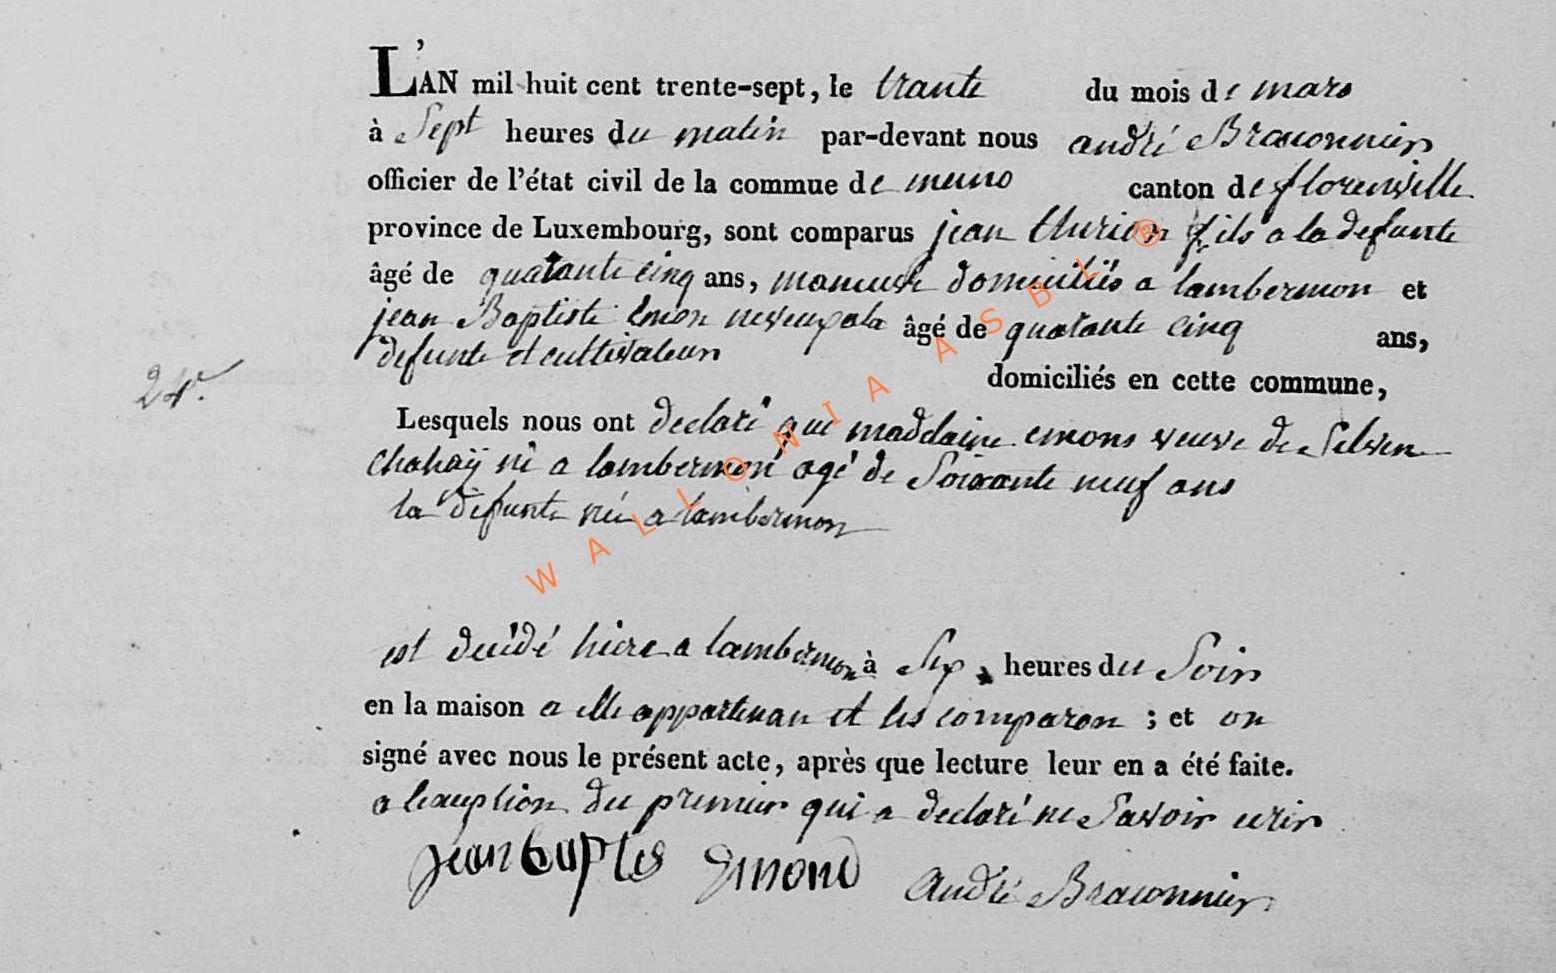 L'AN mil huit cent trente-sept, le trante du mois de mars
à Sept heures du matin par-devant nous andré Braconnier
officier de l'état civil de la commue de muno canton de florenville
province de Luxembourg, sont comparus jean thurion fils a la defunte
âgé de quatante cinq ans, domiciliés a lambermon et
jean Baptiste Emon neveux a la âgé de quatante cinq ans,
defunte et cultivateur
domiciliés en cette commune,
24e.
Lesquels nous ont declaré que madelaine emons veuve de Silvin
chahaÿ né a lambermon agé de Soixante neuf ans
la defunte née a lambermon
est decidé hiere a lambermon à Sep heures du Soir
en la maison a elle appartenan et les comparon ; et on
signé avec nous le présent acte, après que lecture leur en a été faite.
a lexseption du premier qui a declaré ne Savoir ecrir
jean baptes Emond andré Braconnier
WALLONIA ASBL ®